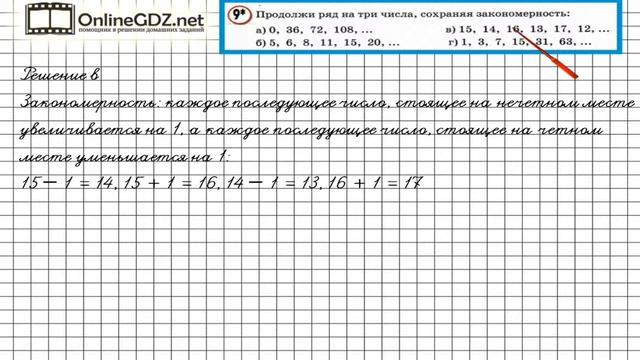 OnlineGDZ.net
помощник в решении домашних заданий
9* Продолжи ряд на три числа, сохраняя закономерность:
а) 0, 36, 72, 108, ...
б) 5, 6, 8, 11, 15, 20, ...
в) 15, 14, 16, 13, 17, 12, ...
г) 1, 3, 7, 15, 31, 63, ...
Решение в
Закономерность: каждое последующее число, стоящее на нечетном месте
увеличивается на 1, а каждое последующее число, стоящее на четном
месте уменьшается на 1:
15 − 1 = 14, 15 + 1 = 16, 14 − 1 = 13, 16 + 1 = 17